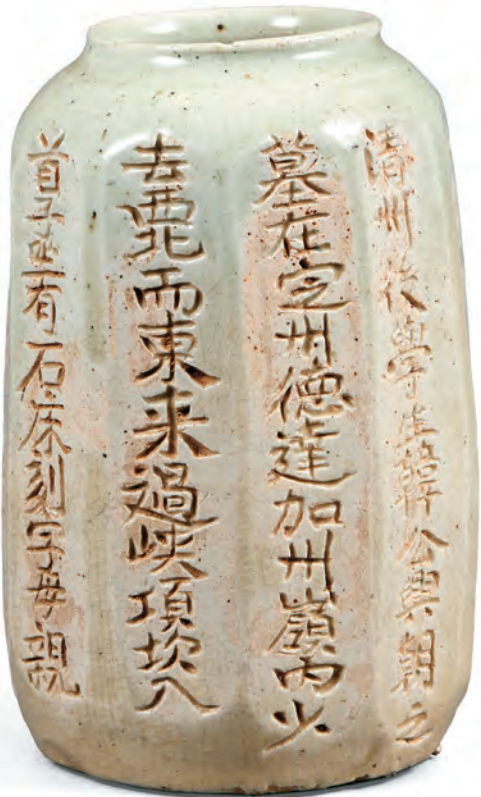 清州後學生韓公興朝之
墓在定州德達加州嶺内少
去西北而東来過峡項坎入
首子坐有石床刻字母親